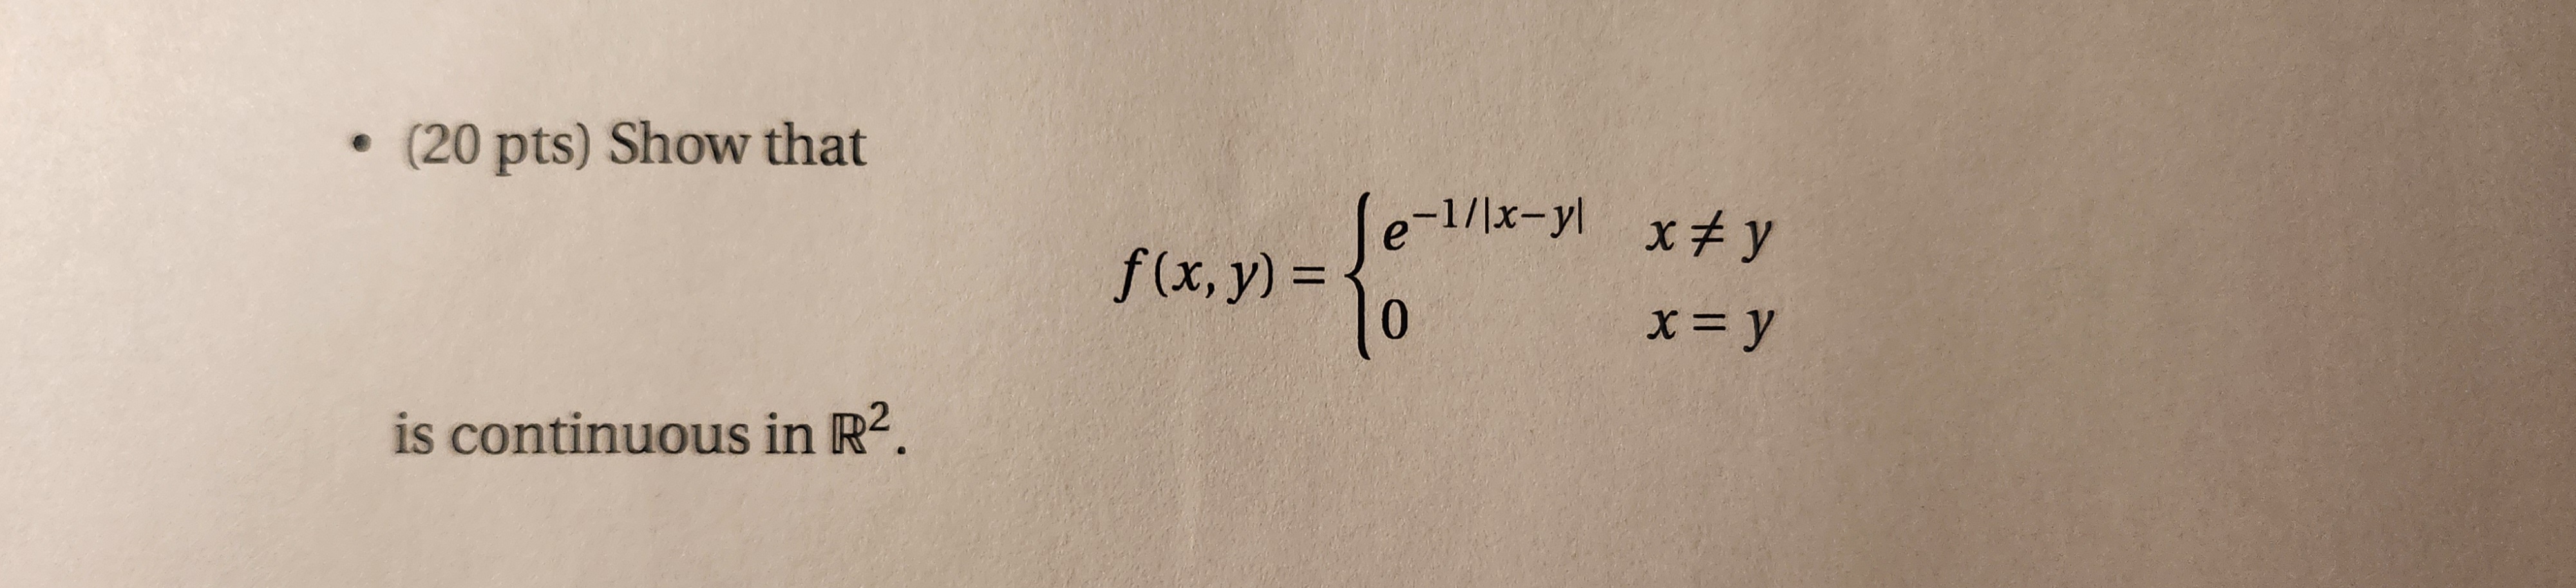 • (20 pts) Show that
f(x, y) = { e^{-1/|x-y|} x ≠ y
0 x = y
is continuous in ℝ².